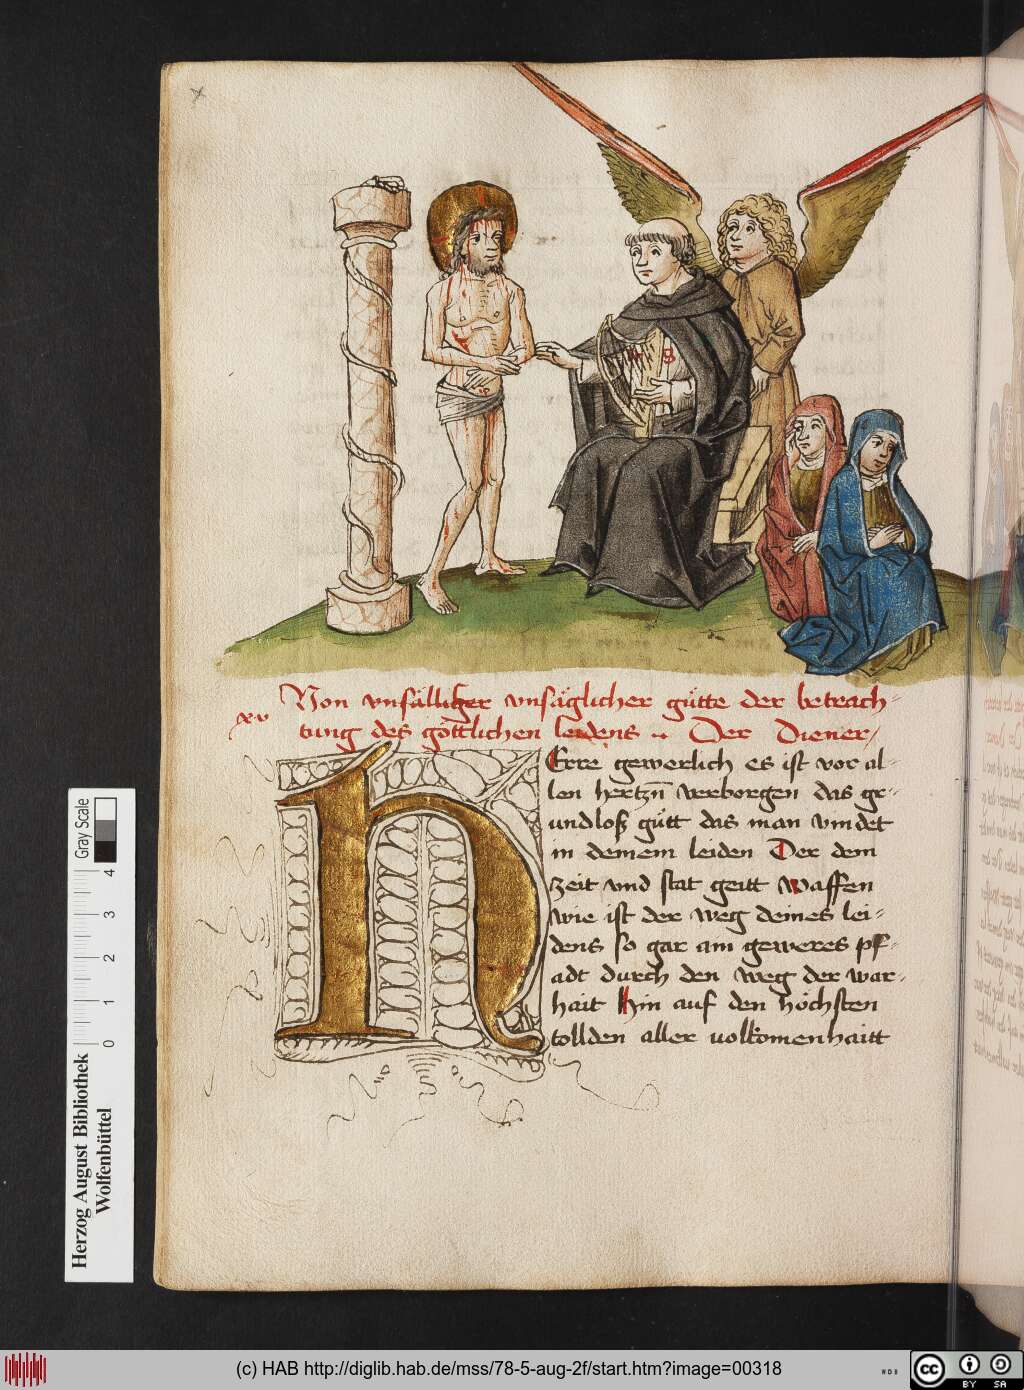 Von vnsälliger vnsäglicher gütte der betrach-
xv tung des göttlichen leidens Der Diener
HErre gewerlich es ist vor al-
len hertzn verborgen das gr-
undloß gütt das man vindet
in deinem leiden Der dem
zeit vnd stat geitt Waffen
wie ist der weg deines lei-
dens so gar ain geweres pf-
adt durch den weg der war-
hait Hin auf den höchsten
tollden aller volkomenhaitt
Gray Scale
0 1 2 3 4
Herzog August Bibliothek
Wolfenbüttel
(c) HAB http://diglib.hab.de/mss/78-5-aug-2f/start.htm?image=00318
WDB
cc
BY SA